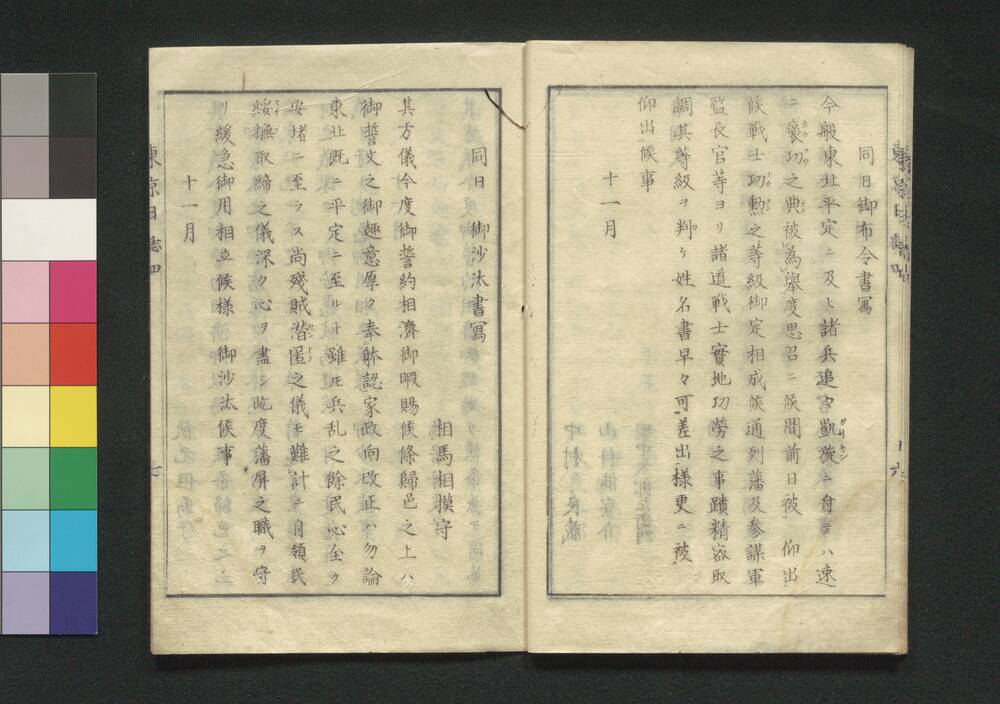 同日御布令書寫
今般東北平定ニ及ヒ諸兵追々凱旋ニ付テハ速
ニ褒功之典被為舉度思召ニ候間前日被 仰出
候戰士功勲之等級御定相成候通列藩及参謀軍
監長官等ヨリ諸道戰士實地功勞之事蹟精密取
調其等級ヲ判ケ姓名書早々可差出様更ニ被
仰出候事
十一月
同日 御沙汰書寫
相馬相摸守
其方儀今度御誓約相濟御暇賜候條歸邑之上ハ
御誓文之御趣意厚ク奉躰認家政向改正ハ勿論
東北既ニ平定ニ至ルト雖𪜈兵乱之餘民心全ク
安堵ニ至ラス尚殘賊潜匿之儀モ難計ニ付領民
綏撫取締之儀深ク心ヲ盡シ此度藩屏之職ヲ守
リ緩急御用相立候様 御沙汰候事
十一月
東京日誌四
七